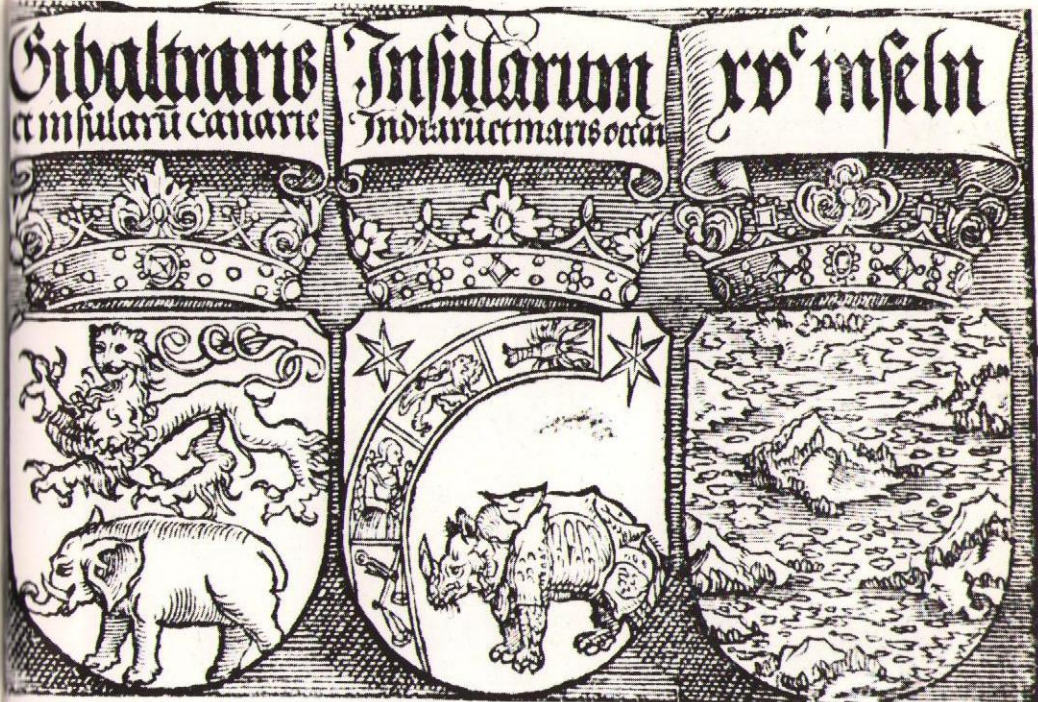 Gibaltraris
et insularū canarie
Insularum
Indiarū et maris occai
xvᶜ inseln